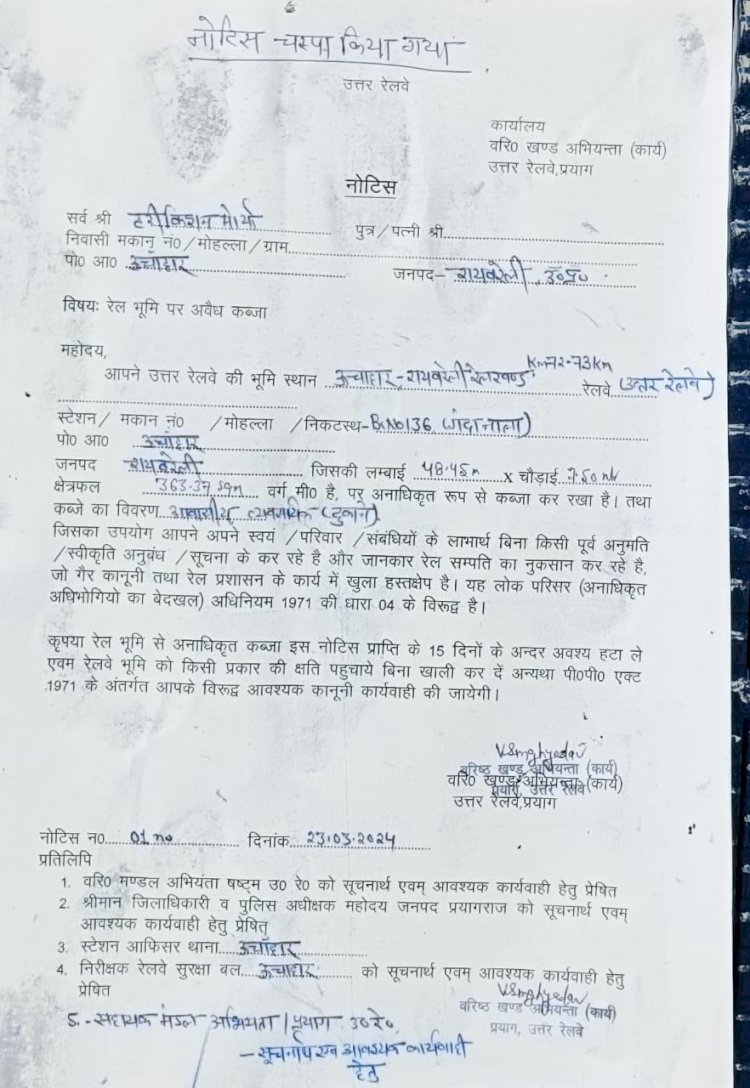 नोटिस चस्पा किया गया
उत्तर रेलवे
कार्यालय
वरि0 खण्ड अभियन्ता (कार्य)
उत्तर रेलवे,प्रयाग
नोटिस
सर्व श्री हरीकिशन मौर्या पुत्र/पत्नी श्री
निवासी मकान नं0/मोहल्ला/ग्राम
पो0 आ0 ऊँचाहार जनपद– रायबरेली, उ०प्र०
विषयः रेल भूमि पर अवैध कब्जा
महोदय,
आपने उत्तर रेलवे की भूमि स्थान ऊँचाहार-रायबरेली रेलखण्ड Km72-73Km रेलवे (उत्तर रेलवे)
स्टेशन/ मकान नं0 /मोहल्ला /निकटस्थ– B.No136 (गंदा नाला)
पो0 आ0 ऊँचाहार
जनपद रायबरेली जिसकी लम्बाई 48.45m x चौड़ाई 7.50 mtr
क्षेत्रफल 363.37 sqm वर्ग मी0 है, पर अनाधिकृत रूप से कब्जा कर रखा है। तथा
कब्जे का विवरण आवासीय व्यवसायिक (दुकाने)
जिसका उपयोग आपने अपने स्वयं /परिवार /संबंधियों के लाभार्थ बिना किसी पूर्व अनुमति
/स्वीकृति अनुबंध /सूचना के कर रहे है और जानकार रेल सम्पति का नुकसान कर रहे है,
जो गैर कानूनी तथा रेल प्रशासन के कार्य में खुला हस्तक्षेप है। यह लोक परिसर (अनाधिकृत
अधिभोगियो का बेदखल) अधिनियम 1971 की धारा 04 के विरूद्व है।
कृपया रेल भूमि से अनाधिकृत कब्जा इस नोटिस प्राप्ति के 15 दिनों के अन्दर अवश्य हटा ले
एवम रेलवे भूमि को किसी प्रकार की क्षति पहुचाये बिना खाली कर दें अन्यथा पी0पी0 एक्ट
1971 के अंतर्गत आपके विरूद्व आवश्यक कानूनी कार्यवाही की जायेगी।
वरिष्ठ खण्ड अभियन्ता (कार्य)
वरि0 खण्ड अभियन्ता (कार्य)
प्रयाग, उत्तर रेलवे
उत्तर रेलवे,प्रयाग
नोटिस न0 01 no दिनांक 23.03.2024
प्रतिलिपि
1. वरि0 मण्डल अभियंता षष्ट्म उ0 रे0 को सूचनार्थ एवम् आवश्यक कार्यवाही हेतु प्रेषित
2. श्रीमान जिलाधिकारी व पुलिस अधीक्षक महोदय जनपद प्रयागराज को सूचनार्थ एवम्
आवश्यक कार्यवाही हेतु प्रेषित्
3. स्टेशन आफिसर थाना ऊँचाहार
4. निरीक्षक रेलवे सुरक्षा बल ऊँचाहार को सूचनार्थ एवम् आवश्यक कार्यवाही हेतु
प्रेषित
वरिष्ठ खण्ड अभियन्ता (कार्य)
प्रयाग, उत्तर रेलवे
5. सहायक मंडल अभियंता/प्रयाग उ०रे०
-सूचनार्थ एवं आवश्यक कार्यवाही
हेतु